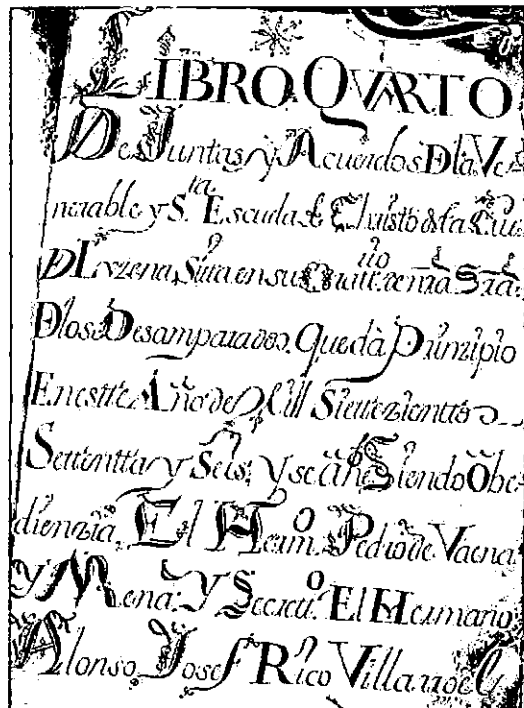 LIBRO QVARTO
De Juntas, y Acuerdos D la Ve
nerable y S.ta Escuela de Christo de la Ciu.
D Luzena Sita en su Quatt.ro
D los Desamparados. Que dà Prinzipio
En estte Año de Mill Siettezienttos
Settentta y Seis; y Siendo Obe
dienzia. El Herm.o Pedro de Vaena
y Mena: Y Secrett.o El Hermano
Alonso Josef Rico Villarroel